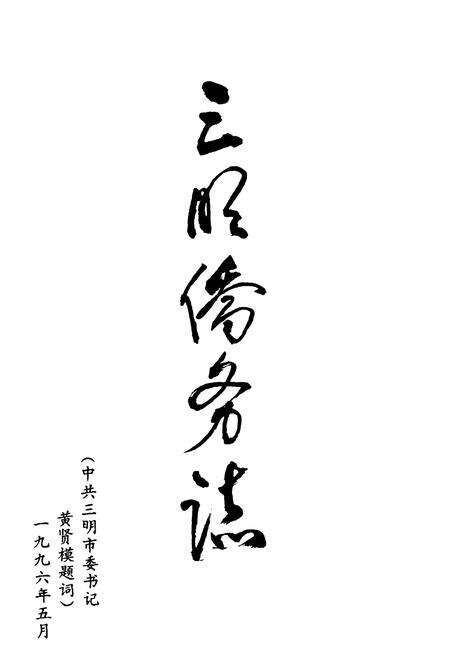 三明侨务志
（中共三明市委书记
黄贤模题词）
一九九六年五月